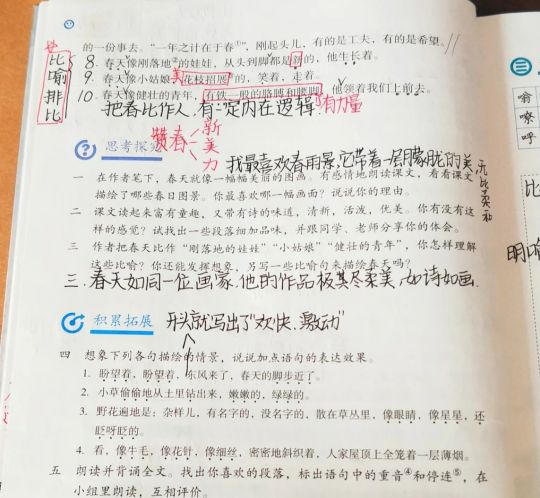 的一份事去。“一年之计在于春①”，刚起头儿，有的是工夫，有的是希望。
比喻排比
8. 春天像刚落地②的娃娃，从头到脚都是新的，他生长着。
9. 春天像小姑娘，花枝招展③的，笑着，走着。
美
10. 春天像健壮的青年，有铁一般的胳膊和腰脚，他领着我们上前去。
把春比作人，有一定内在逻辑
有力量
赞春
新
美
力
思考探究
我最喜欢春雨景，它带着一层朦胧的美
无比柔和
一 在作者笔下，春天就像一幅幅美丽的图画。有感情地朗读课文，看看课文
描绘了哪些春日图景。你最喜欢哪一幅画面？说说你的理由。
二 课文读起来富有童趣，又带有诗的味道，清新，活泼，优美。你有没有这
样的感觉？试找出一些段落细加品味，并跟同学、老师分享你的体会。
三 作者把春天比作“刚落地的娃娃”“小姑娘”“健壮的青年”，你怎样理解
这些比喻？你还能发挥想象，另写一些比喻句来描绘春天吗？
三.春天如同一位画家，他的作品极其尽柔美，如诗如画.
积累拓展
开头就写出了“欢快、激动”
四 想象下列各句描绘的情景，说说加点语句的表达效果。
1. 盼望着，盼望着，东风来了，春天的脚步近了。
2. 小草偷偷地从土里钻出来，嫩嫩的，绿绿的。
3. 野花遍地是：杂样儿，有名字的，没名字的，散在草丛里，像眼睛，像星星，还
眨呀眨的。
4. 看，像牛毛，像花针，像细丝，密密地斜织着，人家屋顶上全笼着一层薄烟。
五 朗读并背诵全文。找出你喜欢的段落，标出语句中的重音④和停连⑤，在
小组里朗读，互相评价。
三
喻
嘹
呼
比
明喻